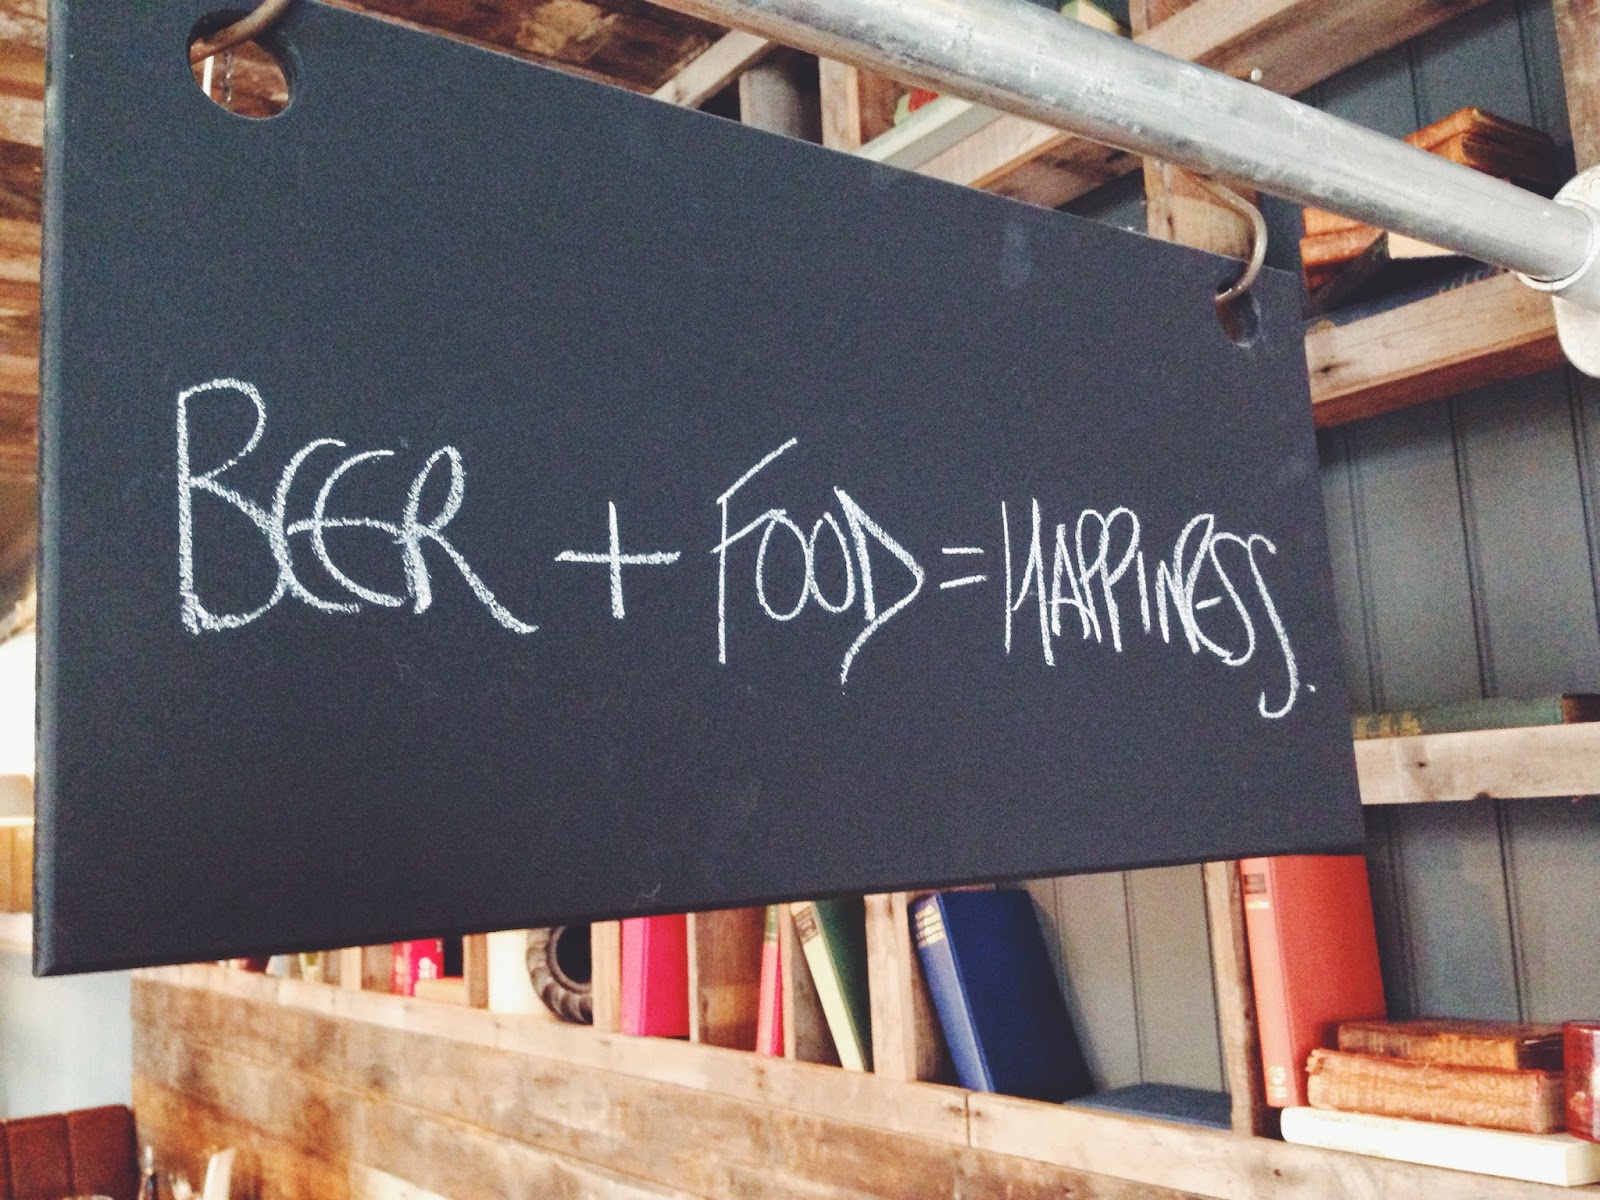 BEER + FOOD = HAPPINESS.